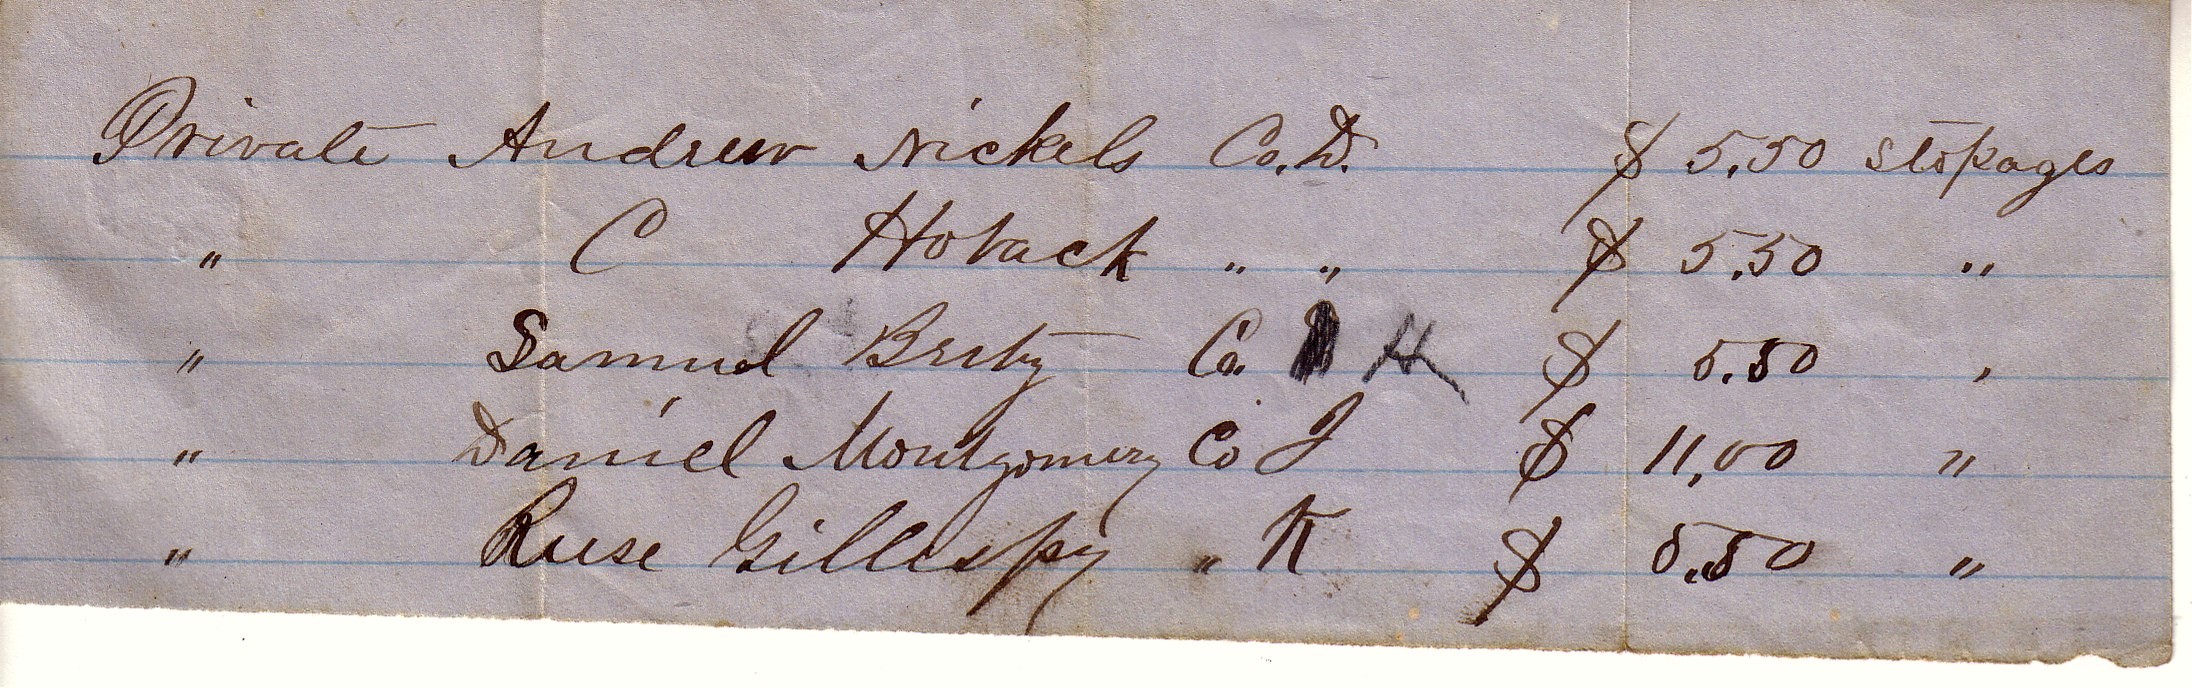 Private Andrew Nickels Co. D. $ 5.50 Stopages
" C Hoback " " $ 5.50 "
" Samuel Co. H $ 5.50 "
" Daniel Montgomery Co I $ 11,00 "
" Reese Gillespy " K $ 5.50 "